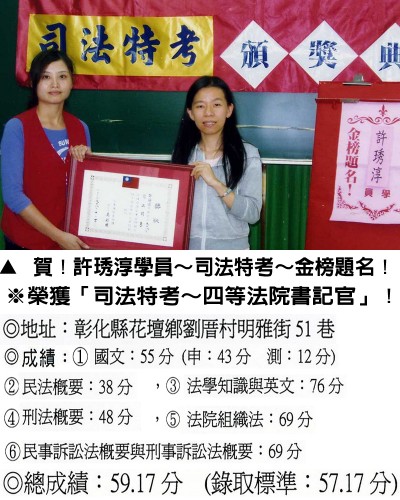 司法特考
頒獎典
金榜題名！
許琇淳
學員
▲ 賀！許琇淳學員～司法特考～金榜題名！
※榮獲「司法特考～四等法院書記官」！
◎地址：彰化縣花壇鄉劉厝村明雅街 51 巷
◎成績：① 國文：55 分 (申：43 分 測：12 分)
② 民法概要：38 分 ，③ 法學知識與英文：76 分
④ 刑法概要：48 分 ，⑤ 法院組織法：69 分
⑥ 民事訴訟法概要與刑事訴訟法概要：69 分
◎總成績：59.17 分 (錄取標準：57.17 分)